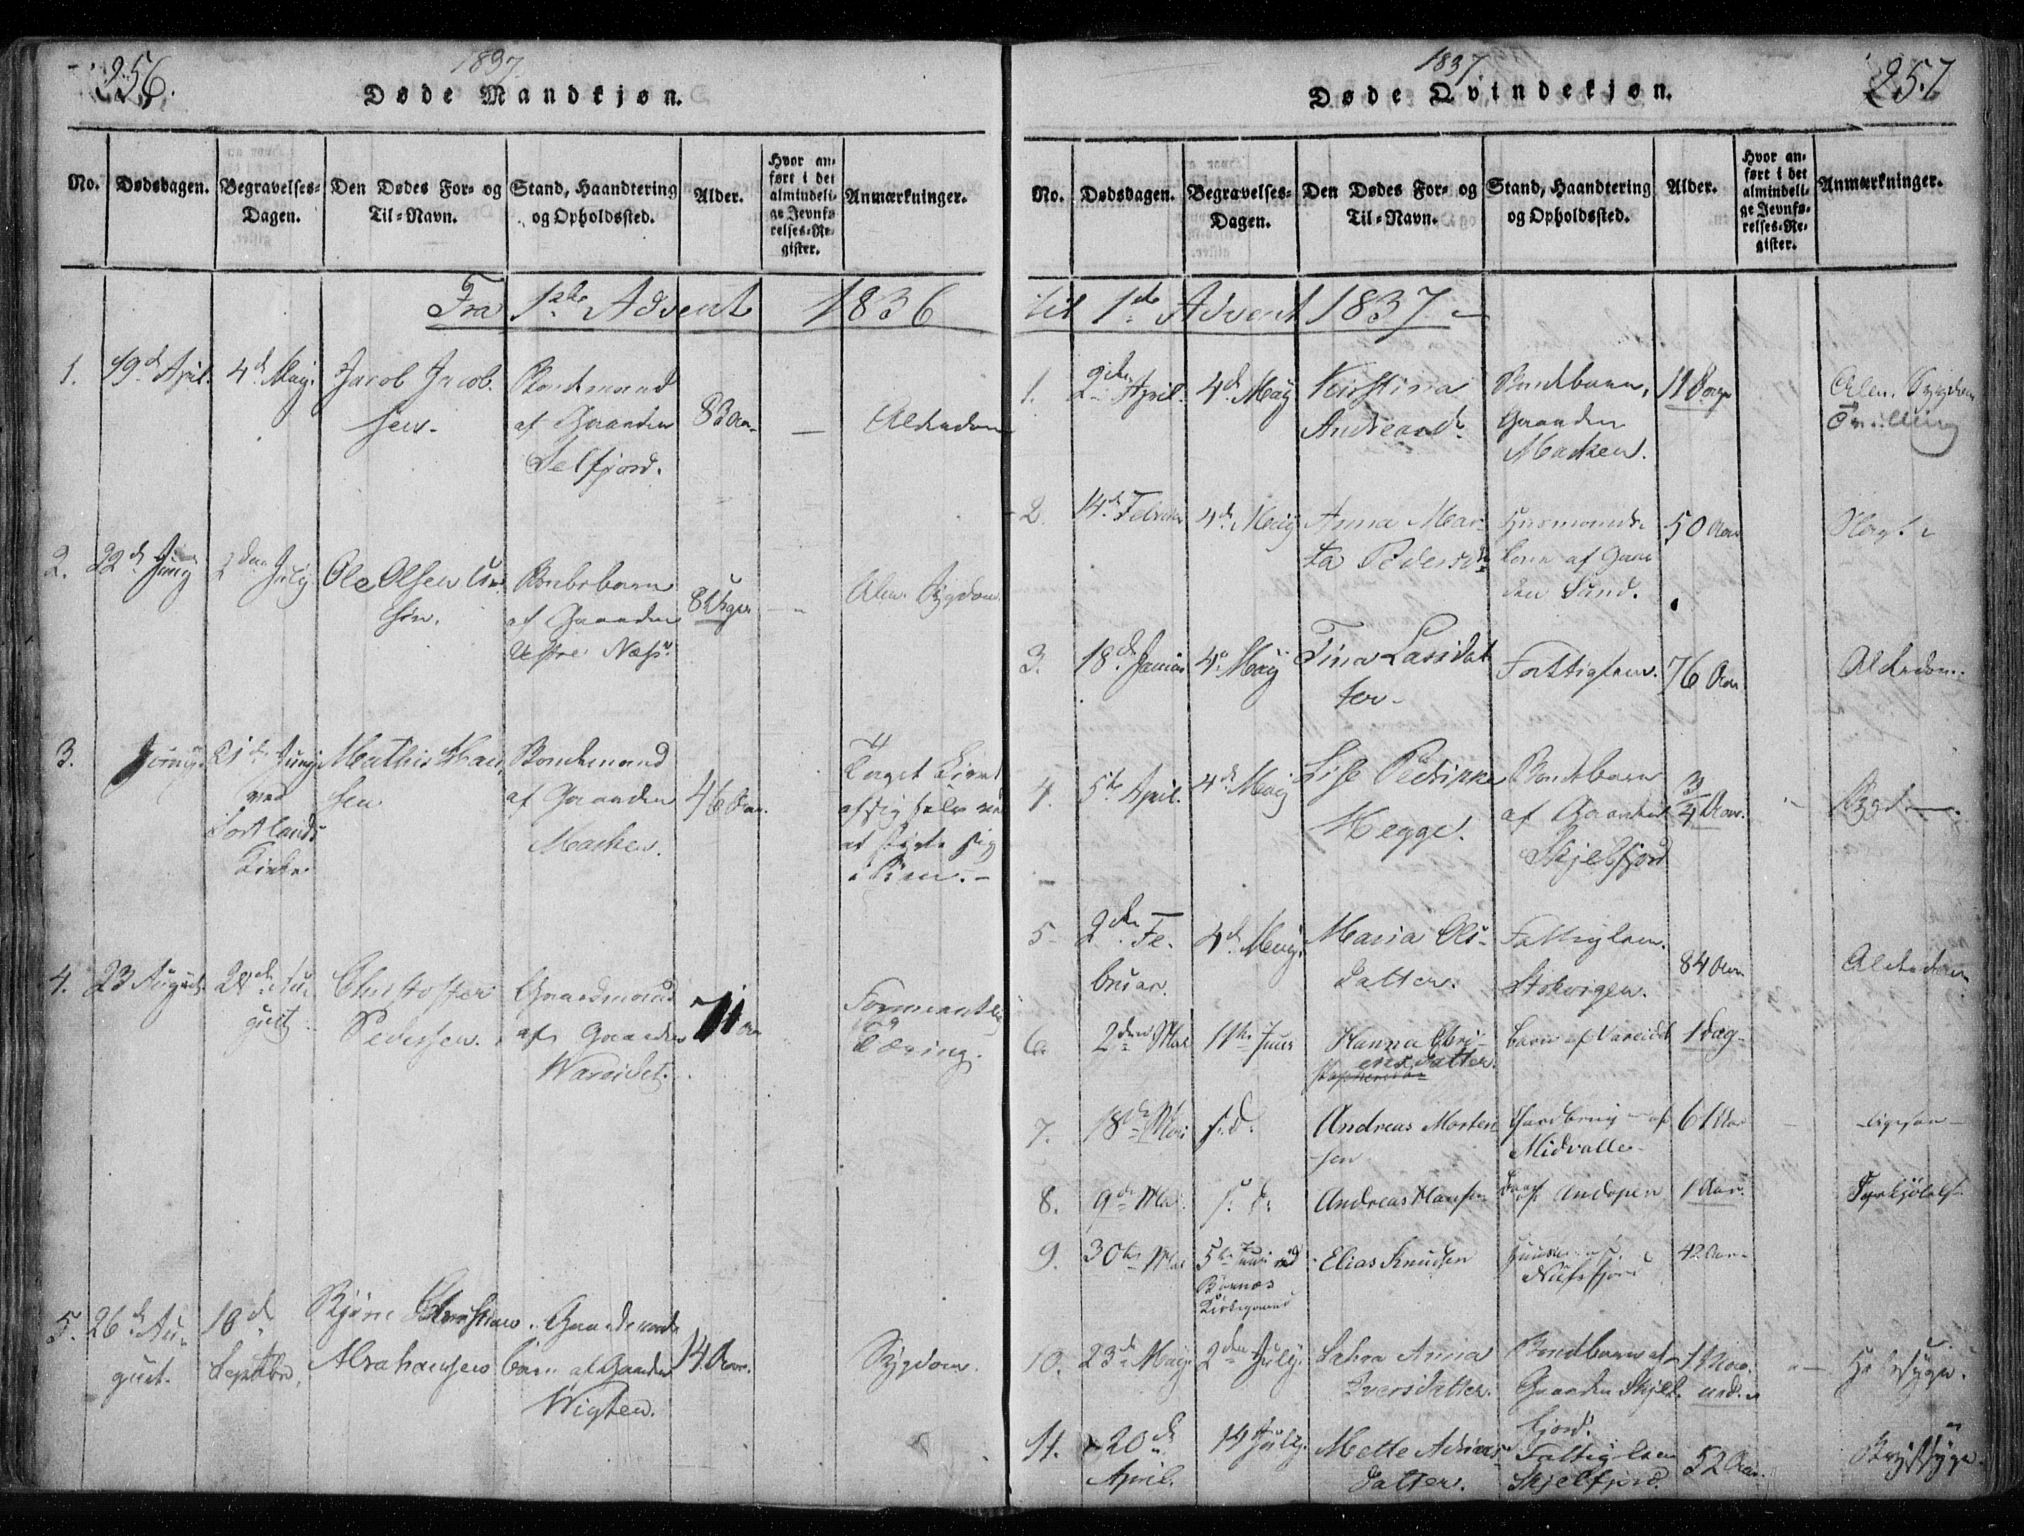 256.
1837
Døde Mandkjøn.
No.
Dødsdagen.
Begravelses-
Dagen.
Den Dødes For- og
Til-Navn.
Stand, Haandtering
og Opholdssted.
Alder.
Hvor an-
ført i det
almindeli-
ge Jevnfø-
relses-Re-
gister.
Anmærkninger.
Fra 1ste Advent 1836
1. 19d April. 4d Maij. Jacob Jacob-
sen.
Bondemand
af Gaarden
Selfjord.
83 Aar
Alderdom
2. 22d Junij 2den Julij Ole Olsen
søn.
Bondebarn
af Gaarden
Vestre Næss.
8 Uger
Alm. Sygdom.
3. Junij. 21d Junij
ved
Kirke.
Mathis Han-
sen
Bondemand
af Gaarden
Marken.
46 Aar.
Taget Livet
af sig selv ved
at styrte sig
4. 23 August 28de Au-
gust
Christoffer
Pedersen.
Gaardmand
af Gaarden
Wareidet.
71 Aar
Formeentlig
Tæring.
5. 26d Au-
gust.
10d
Septbr.
Bjørn Christian
Abrahamsen
Gaardmands
barn af Gaarden
Wigten.
14 Aar.
Sygdom.
257
1837
Døde Qvindekjøn.
No.
Dødsdagen.
Begravelses-
Dagen.
Den Dødes For- og
Til-Navn.
Stand, Haandtering
og Opholdssted.
Alder.
Hvor an-
ført i det
almindeli-
ge Jevnfø-
relses-Re-
gister.
Anmærkninger.
til 1ste Advent 1837
1. 2den April. 4d Maij Kirstina
Andreasd.
Bondebarn,
Gaarden
Marken.
11 Dage
Alm. Sygdom
Tvilling
2. 14d Februar 4d Maij Anna Mar-
ta Pedersd.
Huusmands-
kone af Gaar-
den Sund.
50 Aar
3. 18d Januar 4d Maij Tina Larsdat-
ter.
Fattiglem. 76 Aar
Alderdom.
4. 5te April. 4d Maij Lise Pedrikke
Hegge.
Bondebarn
af Gaarden
Skjelfjord
3/4 Aar.
Sygd.
5 2den Fe-
bruar.
4d Maij. Maria Ols-
Datter.
Fattiglem.
Stokvigen.
84 Aar
Alderdom
6. 2den Mai 11te Juni Hanna Chri-
ensdatter.
barn af Vareidet 1 Dag
7. 18d Mai s.d. Andreas Morten
sen
af
Midvalle
61 Aar
8. 9de Mai. s. d. Andreas Hansen
Barn af Andopen 1 Aar.
9. 30te Mai 5te Juni ved
Kirkegaard
Elias Knudsen
Nusfjord
42 Aar
10. 23d Maij 2den Julij. Sahra Anna
Iversdatter.
Bondebarn af
Gaarden Skjel-
fjord.
1 Aar
11. 20d
April.
14 Julij. Mette Adrias-
Datter.
Fattiglem
Skjelfjord.
52 Aar.
Brystsyge.